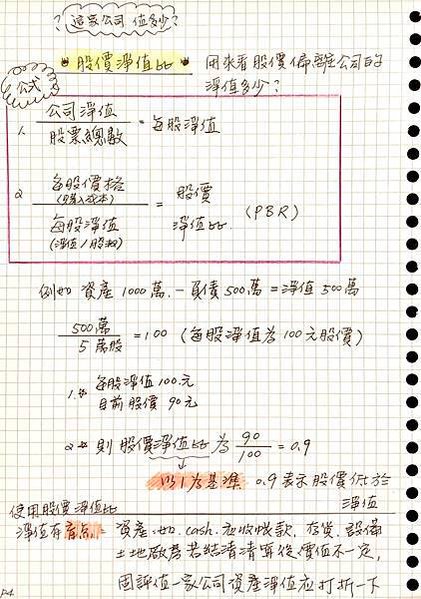 ? 這家公司 值多少?
股價淨值比 用來看股價偏離公司的
淨值多少?
公式
1. 公司淨值 / 股票總數 = 每股淨值
2 每股價格 (購入成本) / 每股淨值 (淨值/股數) = 股價淨值比. (PBR)
例如 資產1000萬 - 負債500萬 = 淨值 500萬
500萬 / 5萬股 = 100 (每股淨值為100元股價)
1.* 每股淨值 100元
目前股價 90元
2* 則 股價淨值比 為 90/100 = 0.9
以1為基準 0.9 表示股價低於
淨值
使用股價淨值比
淨值有盲點: 資產.如.cash.应收帳款,存貨.設備
土地廠房若結清清算後價值不一定,
因評估一家公司資產淨值应打折一下
P4